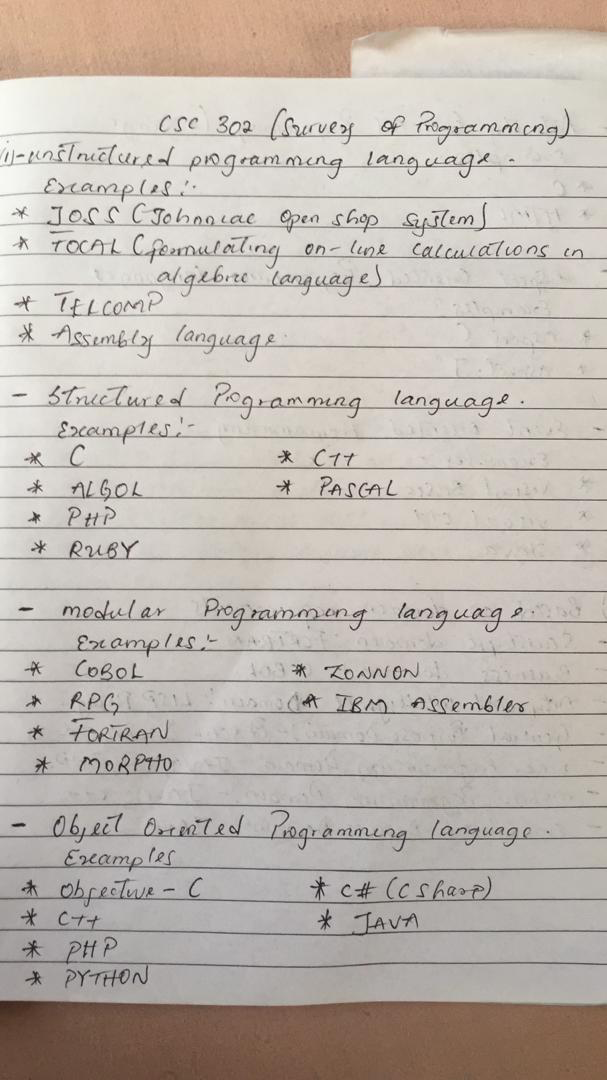 CSC 302 (Survey of Programming)
(1)-unstructured programming language.
Examples:-
* JOSS (Johnniac Open shop system)
* FOCAL (formulating on-line calculations in
algebric language)
* TELCOMP
* Assembly language.
- Structured Programming language.
Examples:-
* C * C++
* ALGOL * PASCAL
* PHP
* RUBY
- modular Programming language.
Examples:-
* COBOL * ZONNON
* RPG * IBM Assembler
* FORTRAN
* MORPHO
- Object Oriented Programming language.
Examples
* Objective - C * C# (C sharp)
* C++ * JAVA
* PHP
* PYTHON